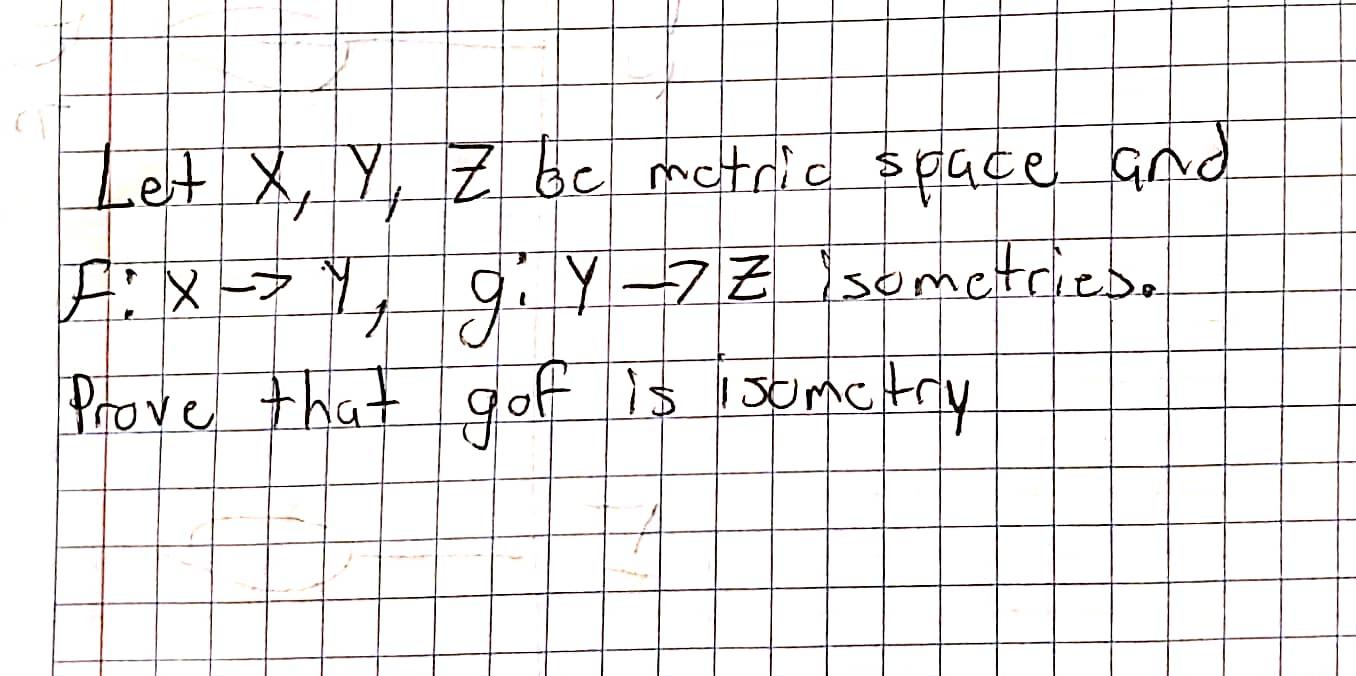 Let X, Y, Z be metric space and
F: X -> Y, g: Y -> Z isometries.
Prove that gof is isometry